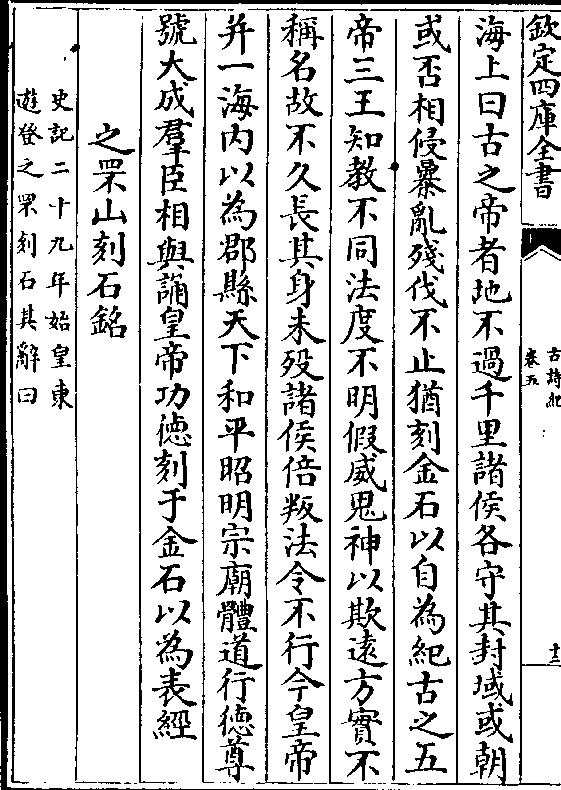 欽定四庫全書
古詩紀
卷五
十二
海上曰古之帝者地不過千里諸侯各守其封域或朝
或否相侵暴亂殘伐不止猶刻金石以自為紀古之五
帝三王知教不同法度不明假威鬼神以欺遠方實不
稱名故不久長其身未歿諸侯倍叛法令不行今皇帝
并一海內以為郡縣天下和平昭明宗廟體道行德尊
號大成羣臣相與誦皇帝功德刻于金石以為表經
之罘山刻石銘
史記二十九年始皇東
遊登之罘刻石其辭曰